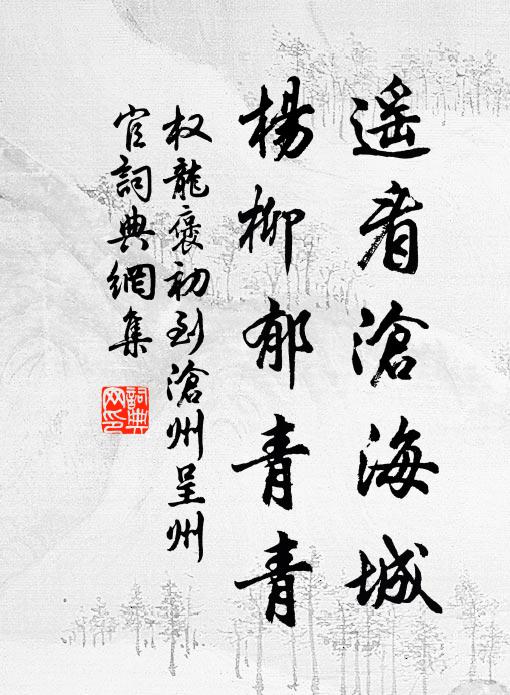 遥看滄海城
楊柳郁青青
权龍褒初到滄州呈州
官詞典網集
詞典
网印